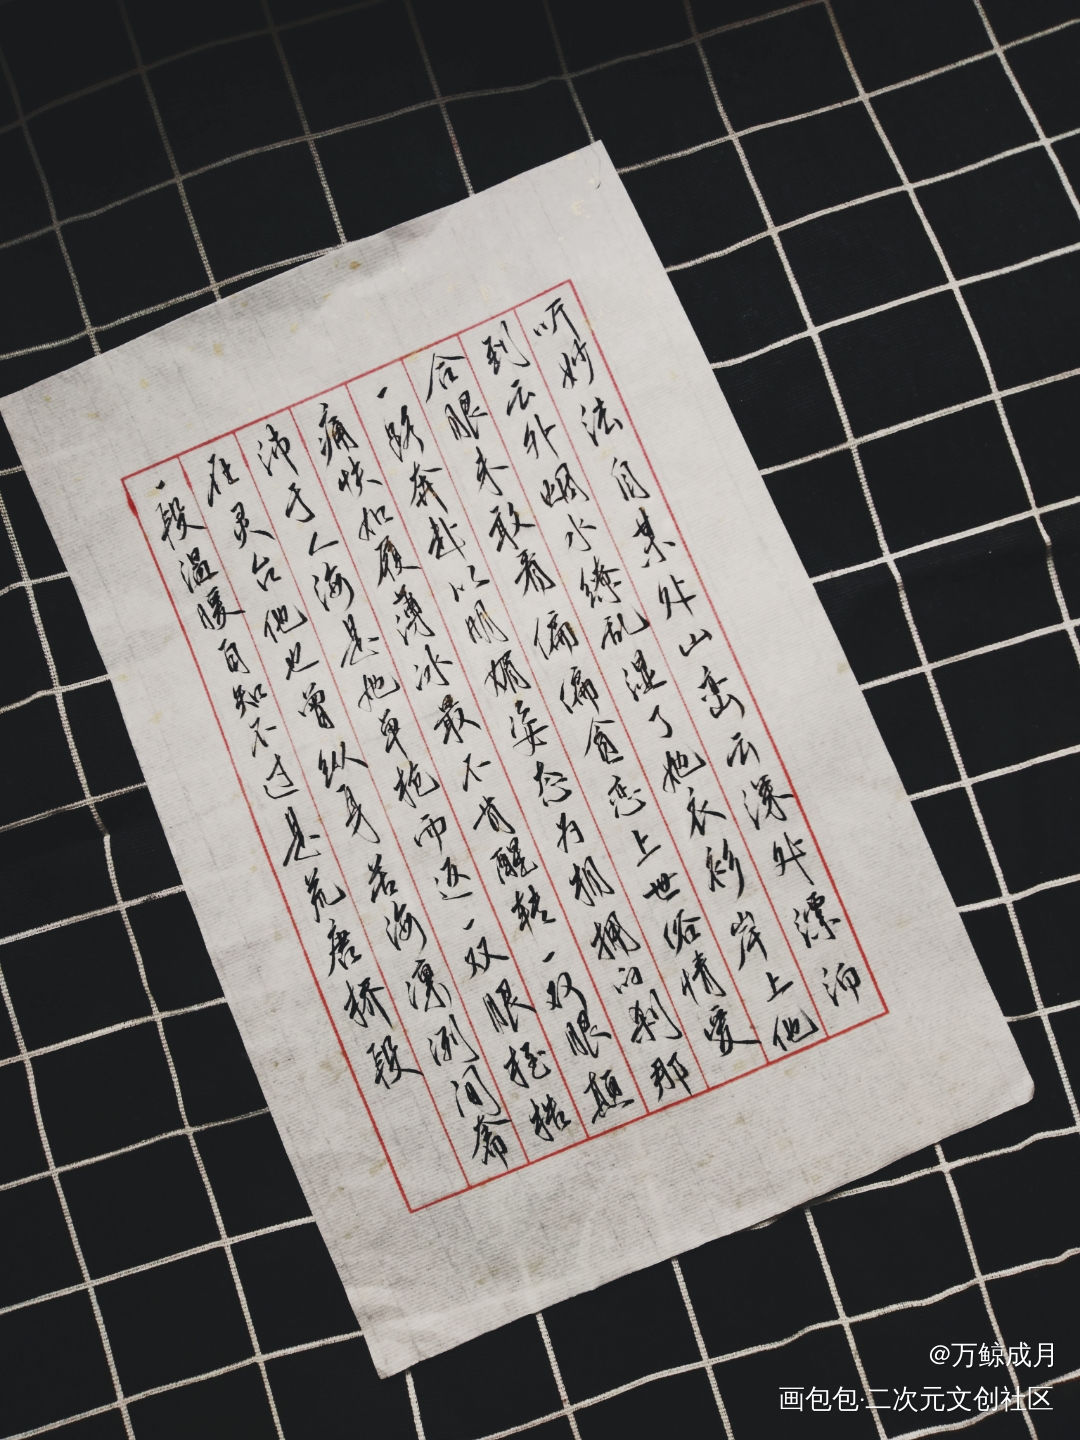 听妙法自某处山峦云深处漂泊
到云外烟水缭乱湿了她衣衫岸上他
合眼未敢看偏偏贪恋上世俗情爱
一路奔赴以明媚姿态为相拥的刹那
痛快如履薄冰最不肯醒转一双眼颠
沛于人海是她单枪而返一双眼桎梏
在灵台他也曾纵身苦海凛冽间
一段温暖自知不过是荒唐桥段
@万鲸成月
画包包·二次元文创社区